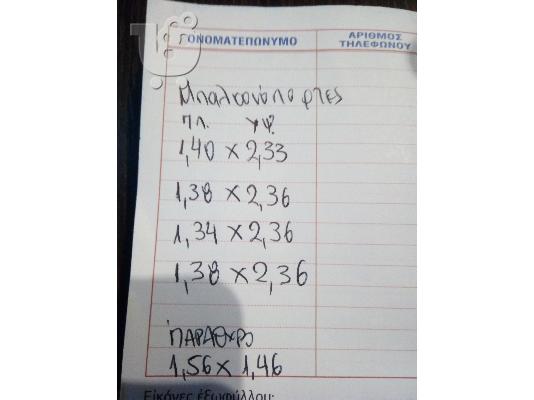 ΟΝΟΜΑΤΕΠΩΝΥΜΟ
ΑΡΙΘΜΟΣ
ΤΗΛΕΦΩΝΟΥ
Μπαλκονόπορτες
πλ. υψ.
1,40 x 2,33
1,38 x 2,36
1,34 x 2,36
1,38 x 2,36
ΠΑΡΑΘΥΡΟ
1,56 x 1,46
Εικόνες εξωφύλλου: